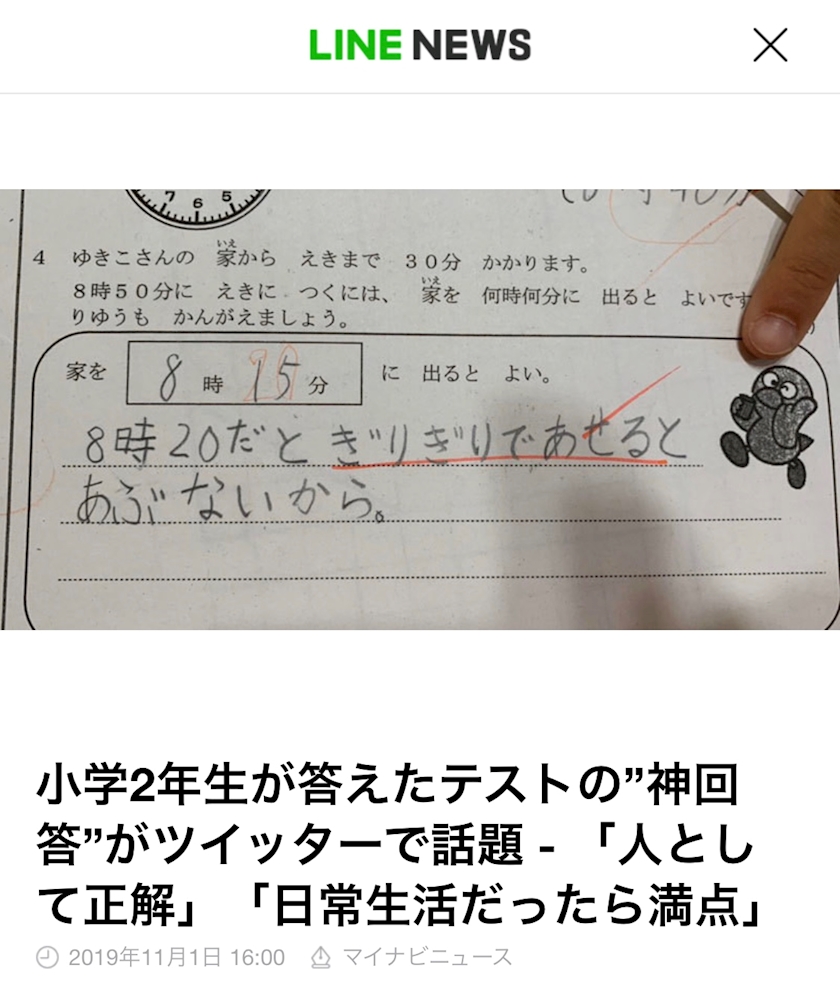 LINE NEWS
7 6 5
4 ゆきこさんの 家から えきまで 30分 かかります。
いえ
8時50分に えきに つくには、 家を 何時何分に 出ると よいです
いえ
りゆうも かんがえましょう。
家を 8 時 15 分 に 出ると よい。
20
8時20だと ぎりぎりであせると
あぶないから。
小学2年生が答えたテストの”神回
答”がツイッターで話題 - 「人とし
て正解」「日常生活だったら満点」
2019年11月1日 16:00 マイナビニュース